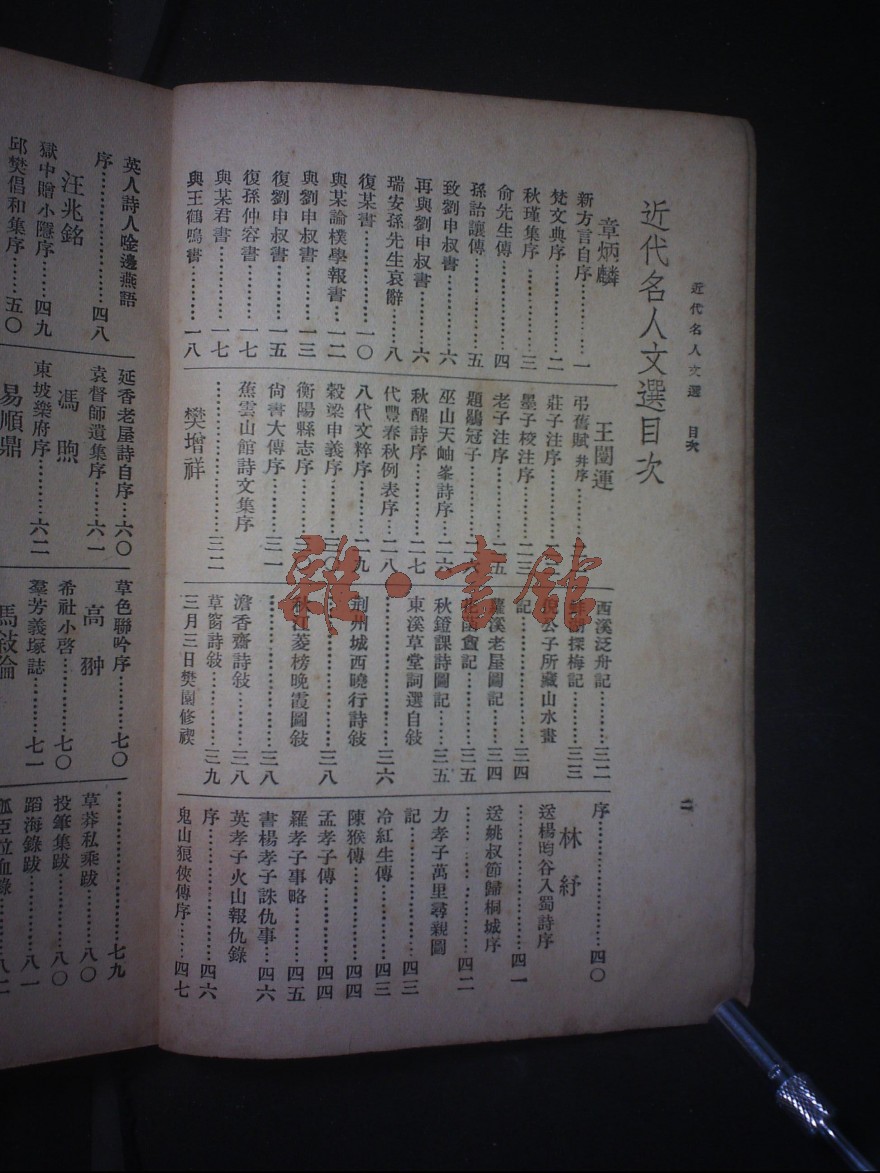 近代名人文選　目次
近代名人文選目次
章炳麟
新方言自序…………一
梵文典序…………二
秋瑾集序…………三
俞先生傳…………四
孫詒讓傳…………五
致劉申叔書…………六
再與劉申叔書…………六
瑞安孫先生哀辭…………八
復某書…………一〇
與某論樸學報書…………一二
與劉申叔書…………一三
復劉申叔書…………一五
復孫仲容書…………一七
與某君書…………一七
與王鶴鳴書…………一八
王闓運
弔舊賦并序…………
莊子注序…………二
墨子校注序…………二三
老子注序…………二五
題鶡冠子…………二六
巫山天岫峯詩序…………二六
秋醒詩序…………二七
代豐春秋例表序…………二八
八代文粹序…………二九
穀梁申義序…………三〇
衡陽縣志序…………
尙書大傳序…………三一
蕉雲山館詩文集序
…………三二
樊增祥
西溪泛舟記…………三二
探梅記…………三三
倪公子所藏山水畫
記…………三四
羅溪老屋圖記…………三四
盦記…………三五
秋鐙課詩圖記…………三五
東溪草堂詞選自敍
…………三六
荆州城西曉行詩敍
…………三八
秋江菱榜晚霞圖敍
…………三八
澹香齋詩敍…………三八
草窗詩敍…………三九
三月三日樊園修禊
序…………四〇
林紓
送楊昀谷入蜀詩序
…………四一
送姚叔節歸桐城序
…………四二
力孝子萬里尋親圖
記…………四三
冷紅生傳…………四三
陳猴傳…………四四
孟孝子傳…………四四
羅孝子事略…………四五
書楊孝子誅仇事…………四六
英孝子火山報仇錄
序…………四六
鬼山狼俠傳序…………四七
二
英人詩人唫邊燕語
序…………四八
汪兆銘
獄中贈小隱序…………四九
邱樊倡和集序…………五〇
延香老屋詩自序…………六〇
袁督師遺集序…………六一
馮煦
東坡樂府序…………六二
易順鼎
草色聯吟序…………七〇
高翀
希社小啓…………七〇
羣芳義塚誌…………七一
馬敍倫
…………七九
草莽私乘跋…………八〇
投筆集跋…………八〇
蹈海錄跋…………八一
孤臣泣血錄…………八二
雜·書館